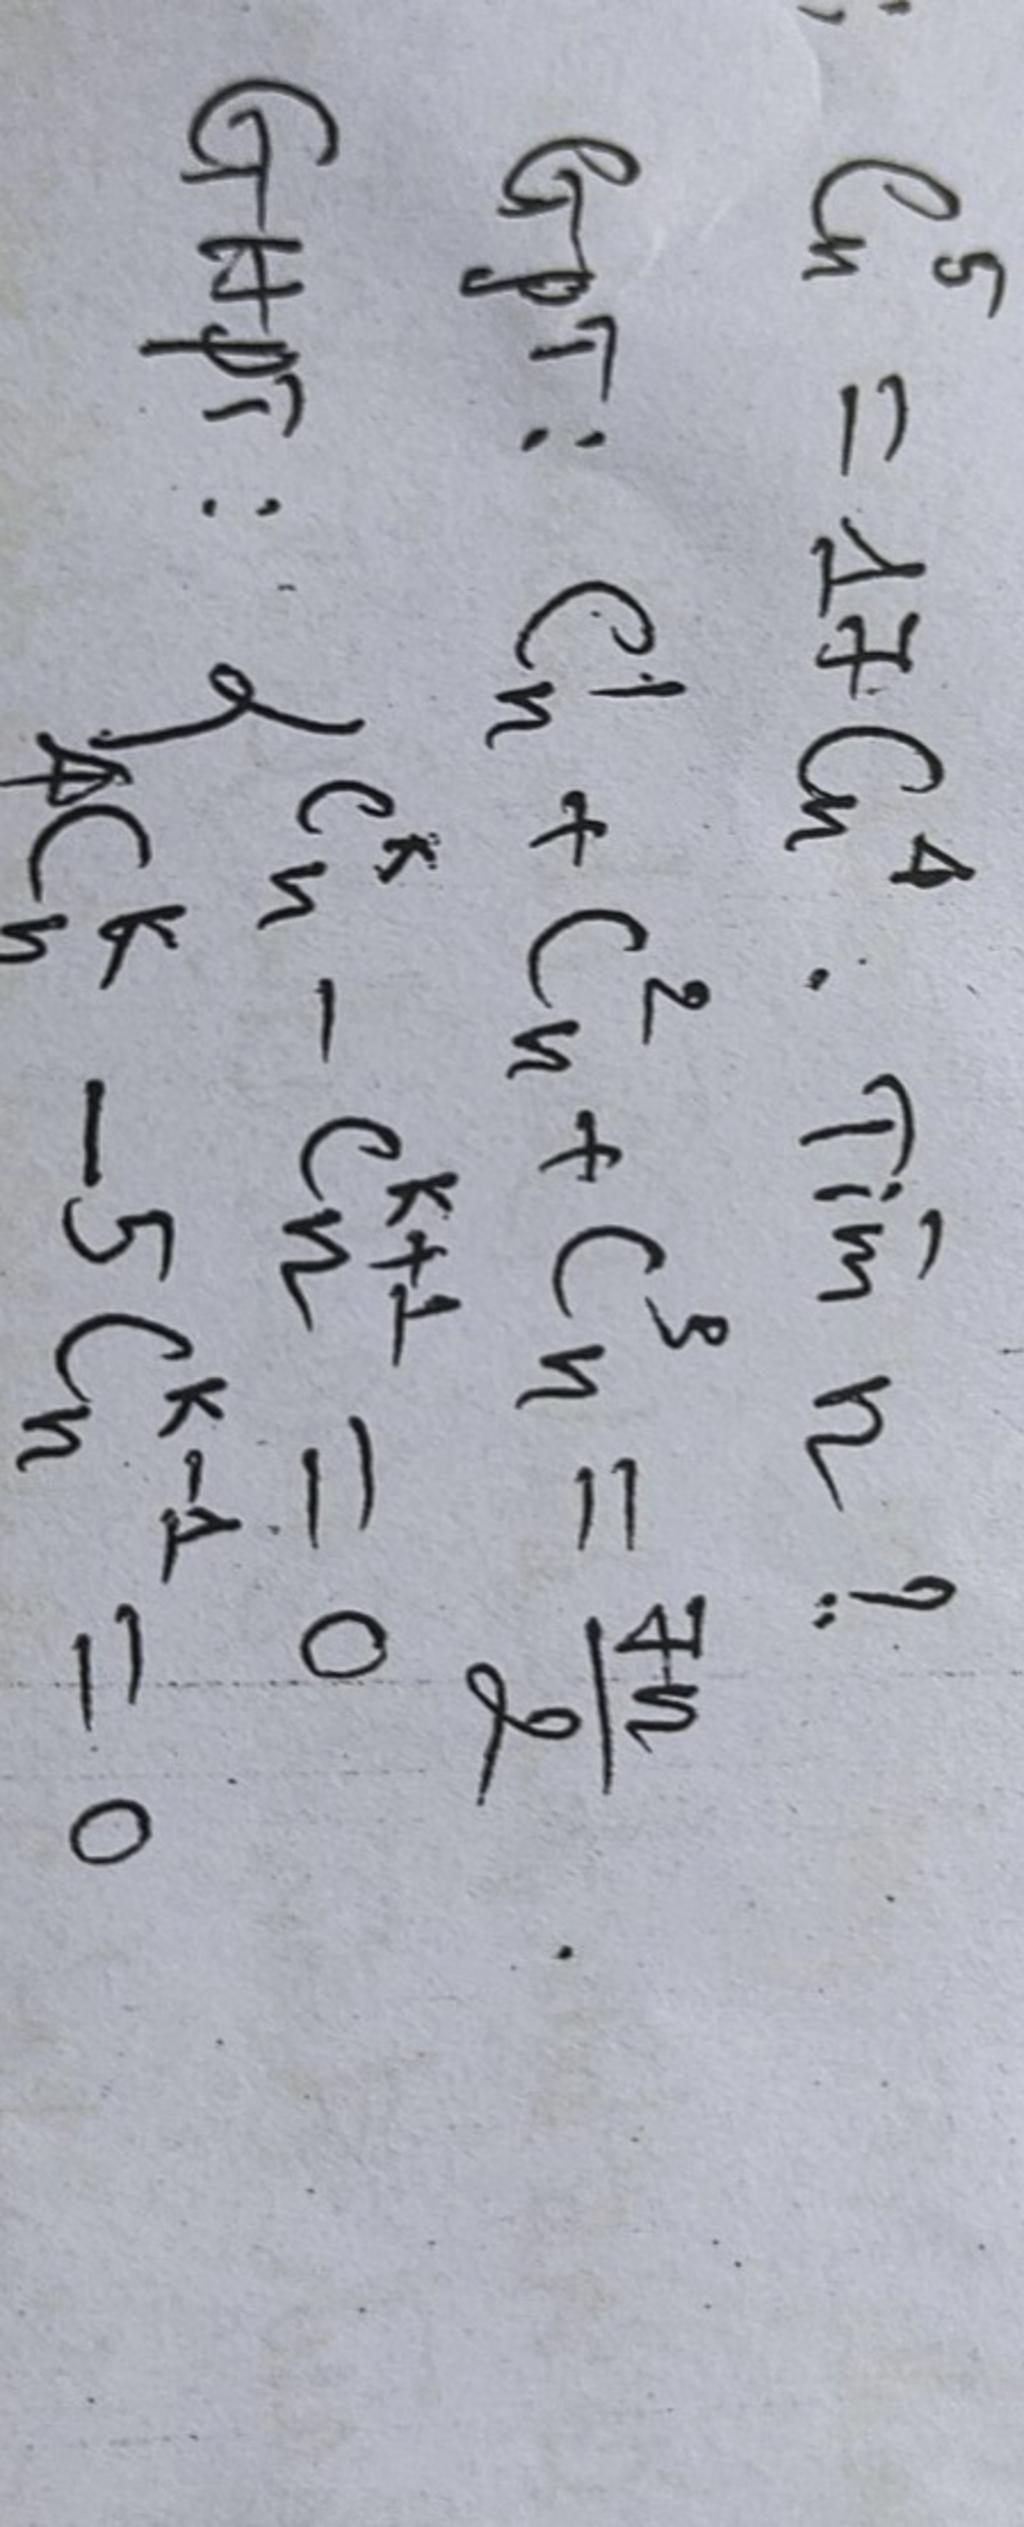 C_n^5 = 17 C_n^4 . Tìm n ?
GPT : C_n^1 + C_n^2 + C_n^3 = 7n/2
GHPT : { C_n^k - C_n^{k+1} = 0
4C_n^k - 5C_n^{k-1} = 0